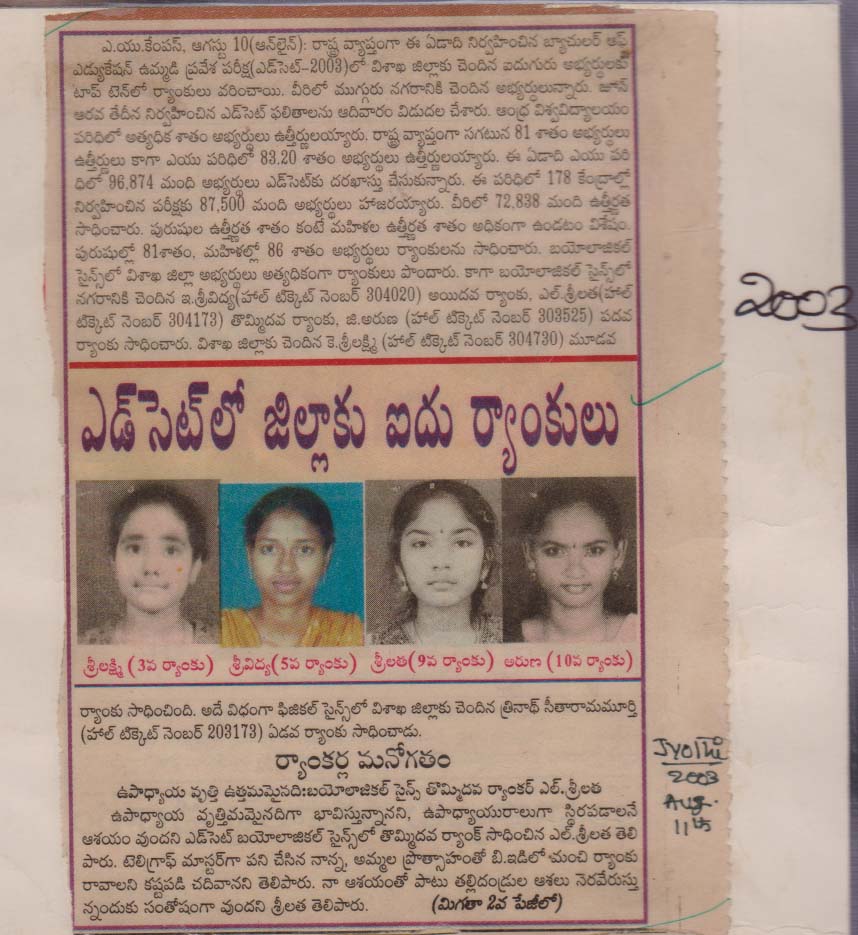 ఎ.యు.కేంపస్, ఆగస్టు 10(ఆన్‌లైన్): రాష్ట్ర వ్యాప్తంగా ఈ ఏడాది నిర్వహించిన బ్యాచులర్ ఆఫ్
ఎడ్యుకేషన్ ఉమ్మడి ప్రవేశ పరీక్ష(ఎడ్‌సెట్-2003)లో విశాఖ జిల్లాకు చెందిన ఐదుగురు అభ్యర్థులకు
టాప్ టెన్‌లో ర్యాంకులు వరించాయి. వీరిలో ముగ్గురు నగరానికి చెందిన అభ్యర్థులున్నారు. జూన్
ఆరవ తేదీన నిర్వహించిన ఎడ్‌సెట్ ఫలితాలను ఆదివారం విడుదల చేశారు. ఆంధ్ర విశ్వవిద్యాలయం
పరిధిలో అత్యధిక శాతం అభ్యర్థులు ఉత్తీర్ణులయ్యారు. రాష్ట్ర వ్యాప్తంగా సగటున 81 శాతం అభ్యర్థులు
ఉత్తీర్ణులు కాగా ఎయు పరిధిలో 83.20 శాతం అభ్యర్థులు ఉత్తీర్ణులయ్యారు. ఈ ఏడాది ఎయు పరి
ధిలో 96,874 మంది అభ్యర్థులు ఎడ్‌సెట్‌కు దరఖాస్తు చేసుకున్నారు. ఈ పరిధిలో 178 కేంద్రాల్లో
నిర్వహించిన పరీక్షకు 87,500 మంది అభ్యర్థులు హాజరయ్యారు. వీరిలో 72,838 మంది ఉత్తీర్ణత
సాధించారు. పురుషుల ఉత్తీర్ణత శాతం కంటే మహిళల ఉత్తీర్ణత శాతం అధికంగా ఉండటం విశేషం.
పురుషుల్లో 81శాతం, మహిళల్లో 86 శాతం అభ్యర్థులు ర్యాంకులను సాధించారు. బయోలాజికల్
సైన్స్‌లో విశాఖ జిల్లా అభ్యర్థులు అత్యధికంగా ర్యాంకులు పొందారు. కాగా బయోలాజికల్ సైన్స్‌లో
నగరానికి చెందిన ఇ.శ్రీవిద్య(హాల్ టిక్కెట్ నెంబర్ 304020) అయిదవ ర్యాంకు, ఎల్.శ్రీలత(హాల్
టిక్కెట్ నెంబర్ 304173) తొమ్మిదవ ర్యాంకు, జి.అరుణ (హాల్ టిక్కెట్ నెంబర్ 303525) పదవ
ర్యాంకు సాధించారు. విశాఖ జిల్లాకు చెందిన కె.శ్రీలక్ష్మి (హాల్ టిక్కెట్ నెంబర్ 304730) మూడవ
2003
ఎడ్‌సెట్‌లో జిల్లాకు ఐదు ర్యాంకులు
శ్రీలక్ష్మి (3వ ర్యాంకు) శ్రీవిద్య(5వ ర్యాంకు) శ్రీలత(9వ ర్యాంకు) అరుణ (10వ ర్యాంకు)
ర్యాంకు సాధించింది. అదే విధంగా ఫిజికల్ సైన్స్‌లో విశాఖ జిల్లాకు చెందిన త్రినాథ్ సీతారామమూర్తి
(హాల్ టిక్కెట్ నెంబర్ 203173) ఏడవ ర్యాంకు సాధించాడు.
ర్యాంకర్ల మనోగతం
ఉపాధ్యాయ వృత్తి ఉత్తమమైనది:బయోలాజికల్ సైన్స్ తొమ్మిదవ ర్యాంకర్ ఎల్. శ్రీలత
ఉపాధ్యాయ వృత్తిమమైనదిగా భావిస్తున్నానని, ఉపాధ్యాయురాలుగా స్థిరపడాలనే
ఆశయం వుందని ఎడ్‌సెట్ బయోలాజికల్ సైన్స్‌లో తొమ్మిదవ ర్యాంక్ సాధించిన ఎల్.శ్రీలత తెలి
పారు. టెలిగ్రాఫ్ మాస్టర్‌గా పని చేసిన నాన్న, అమ్మల ప్రోత్సాహంతో బి.ఇడిలో మంచి ర్యాంకు
రావాలని కష్టపడి చదివానని తెలిపారు. నా ఆశయంతో పాటు తల్లిదండ్రుల ఆశలు నెరవేరుస్తు
న్నందుకు సంతోషంగా వుందని శ్రీలత తెలిపారు. (మిగతా 2వ పేజీలో)
JYOTHI
2003
Aug.
11th